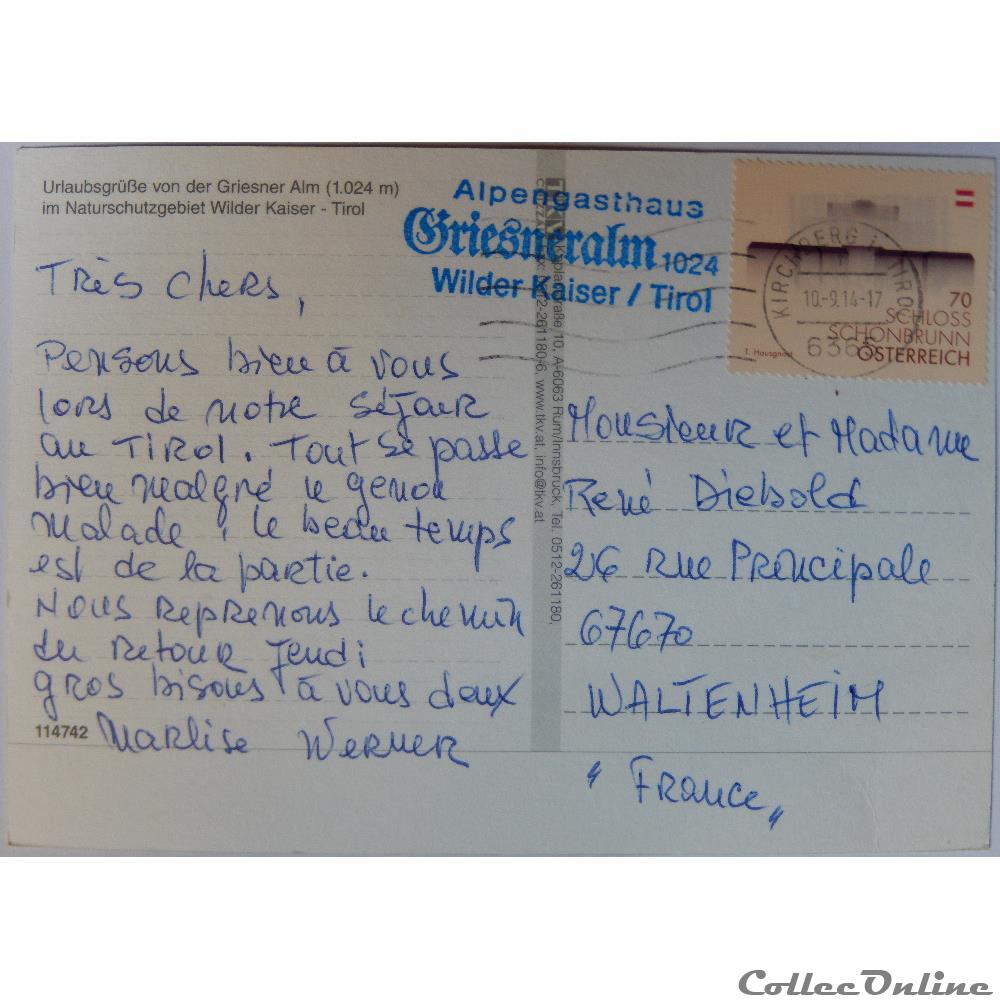 Urlaubsgrüße von der Griesner Alm (1.024 m)
im Naturschutzgebiet Wilder Kaiser - Tirol
Alpengasthaus
Griesneralm 1024
Wilder Kaiser / Tirol
KIRCHBERG IN TIROL
10.-9.14-17
6365
70
SCHLOSS
SCHÖNBRUNN
ÖSTERREICH
Très chers,
Pensons bien à vous
lors de notre séjour
au Tirol. Tout se passe
bien malgré le genou
malade, le beau temps
est de la partie.
Nous reprenons le chemin
du retour jeudi
gros bisous à vous deux
Marlise Werner
114742
Kaplanstraße 10, A-6063 Rum/Innsbruck, Tel. 0512-261180,
0512-261180-6, www.tkv.at, info@tkv.at
Monsieur et Madame
René Diebold
26 rue Principale
67670
WALTENHEIM
"France"
CollecOnline